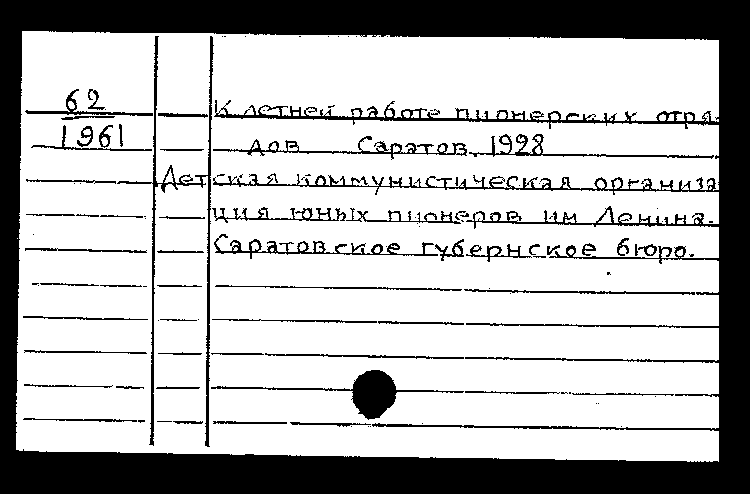 62
1961
К летней работе пионерских отря-
дов Саратов, 1928
Детская коммунистическая организа
ция юных пионеров им Ленина.
Саратовское губернское бюро.